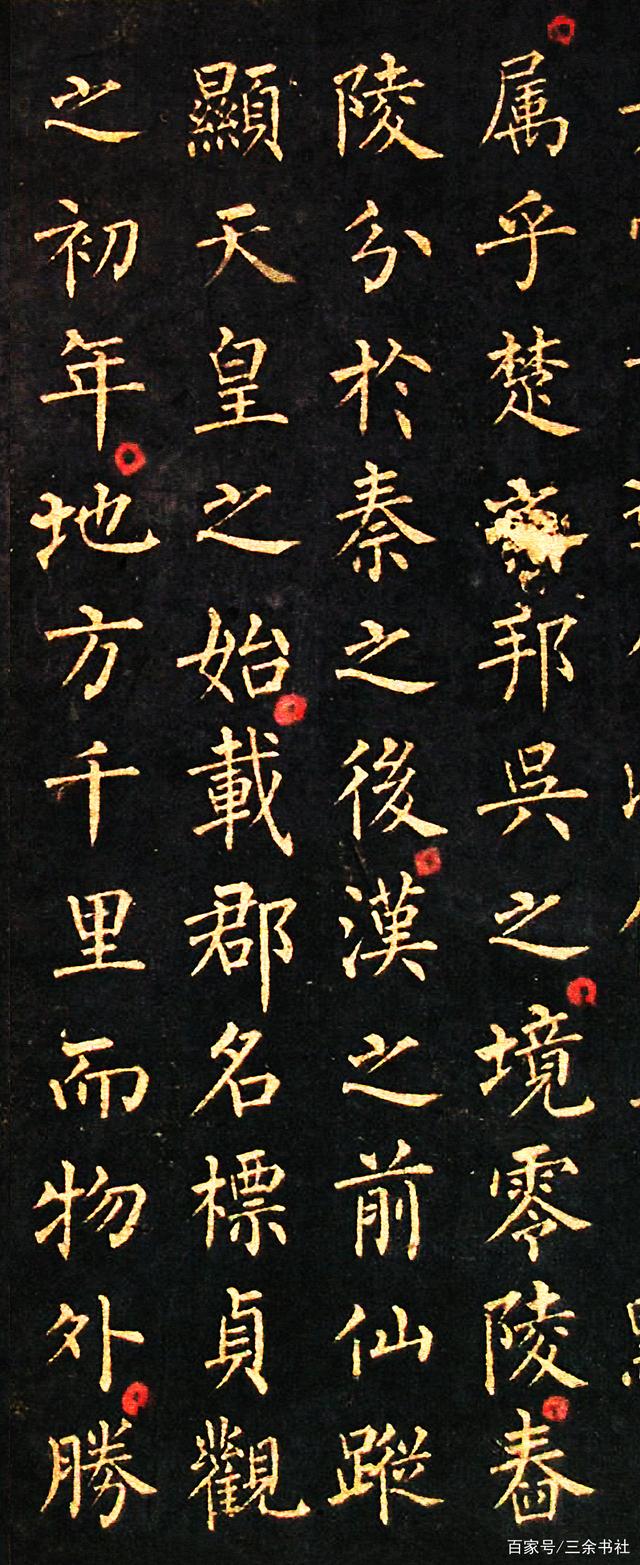 属乎楚邦吳之境零陵舂
陵分於秦之後漢之前仙蹤
顯天皇之始載郡名標貞觀
之初年地方千里而物外勝
百家号/三余书社